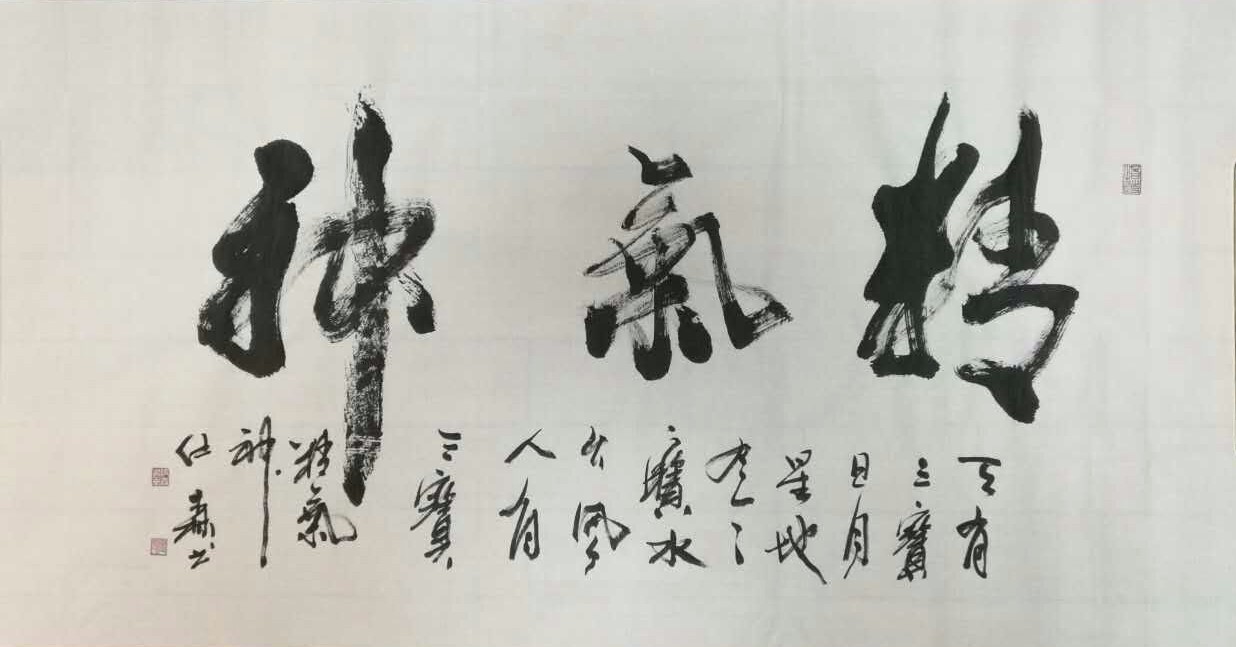 精氣神
天有
三寶
日月
星地
有三
寶水
火風
人有
三寶
精氣
神
仕书